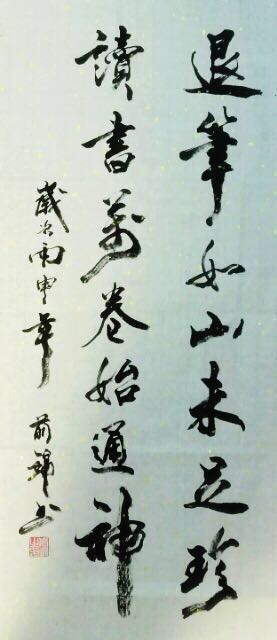 退筆如山未足珍
讀書萬卷始通神
歲次丙申年 前錦书